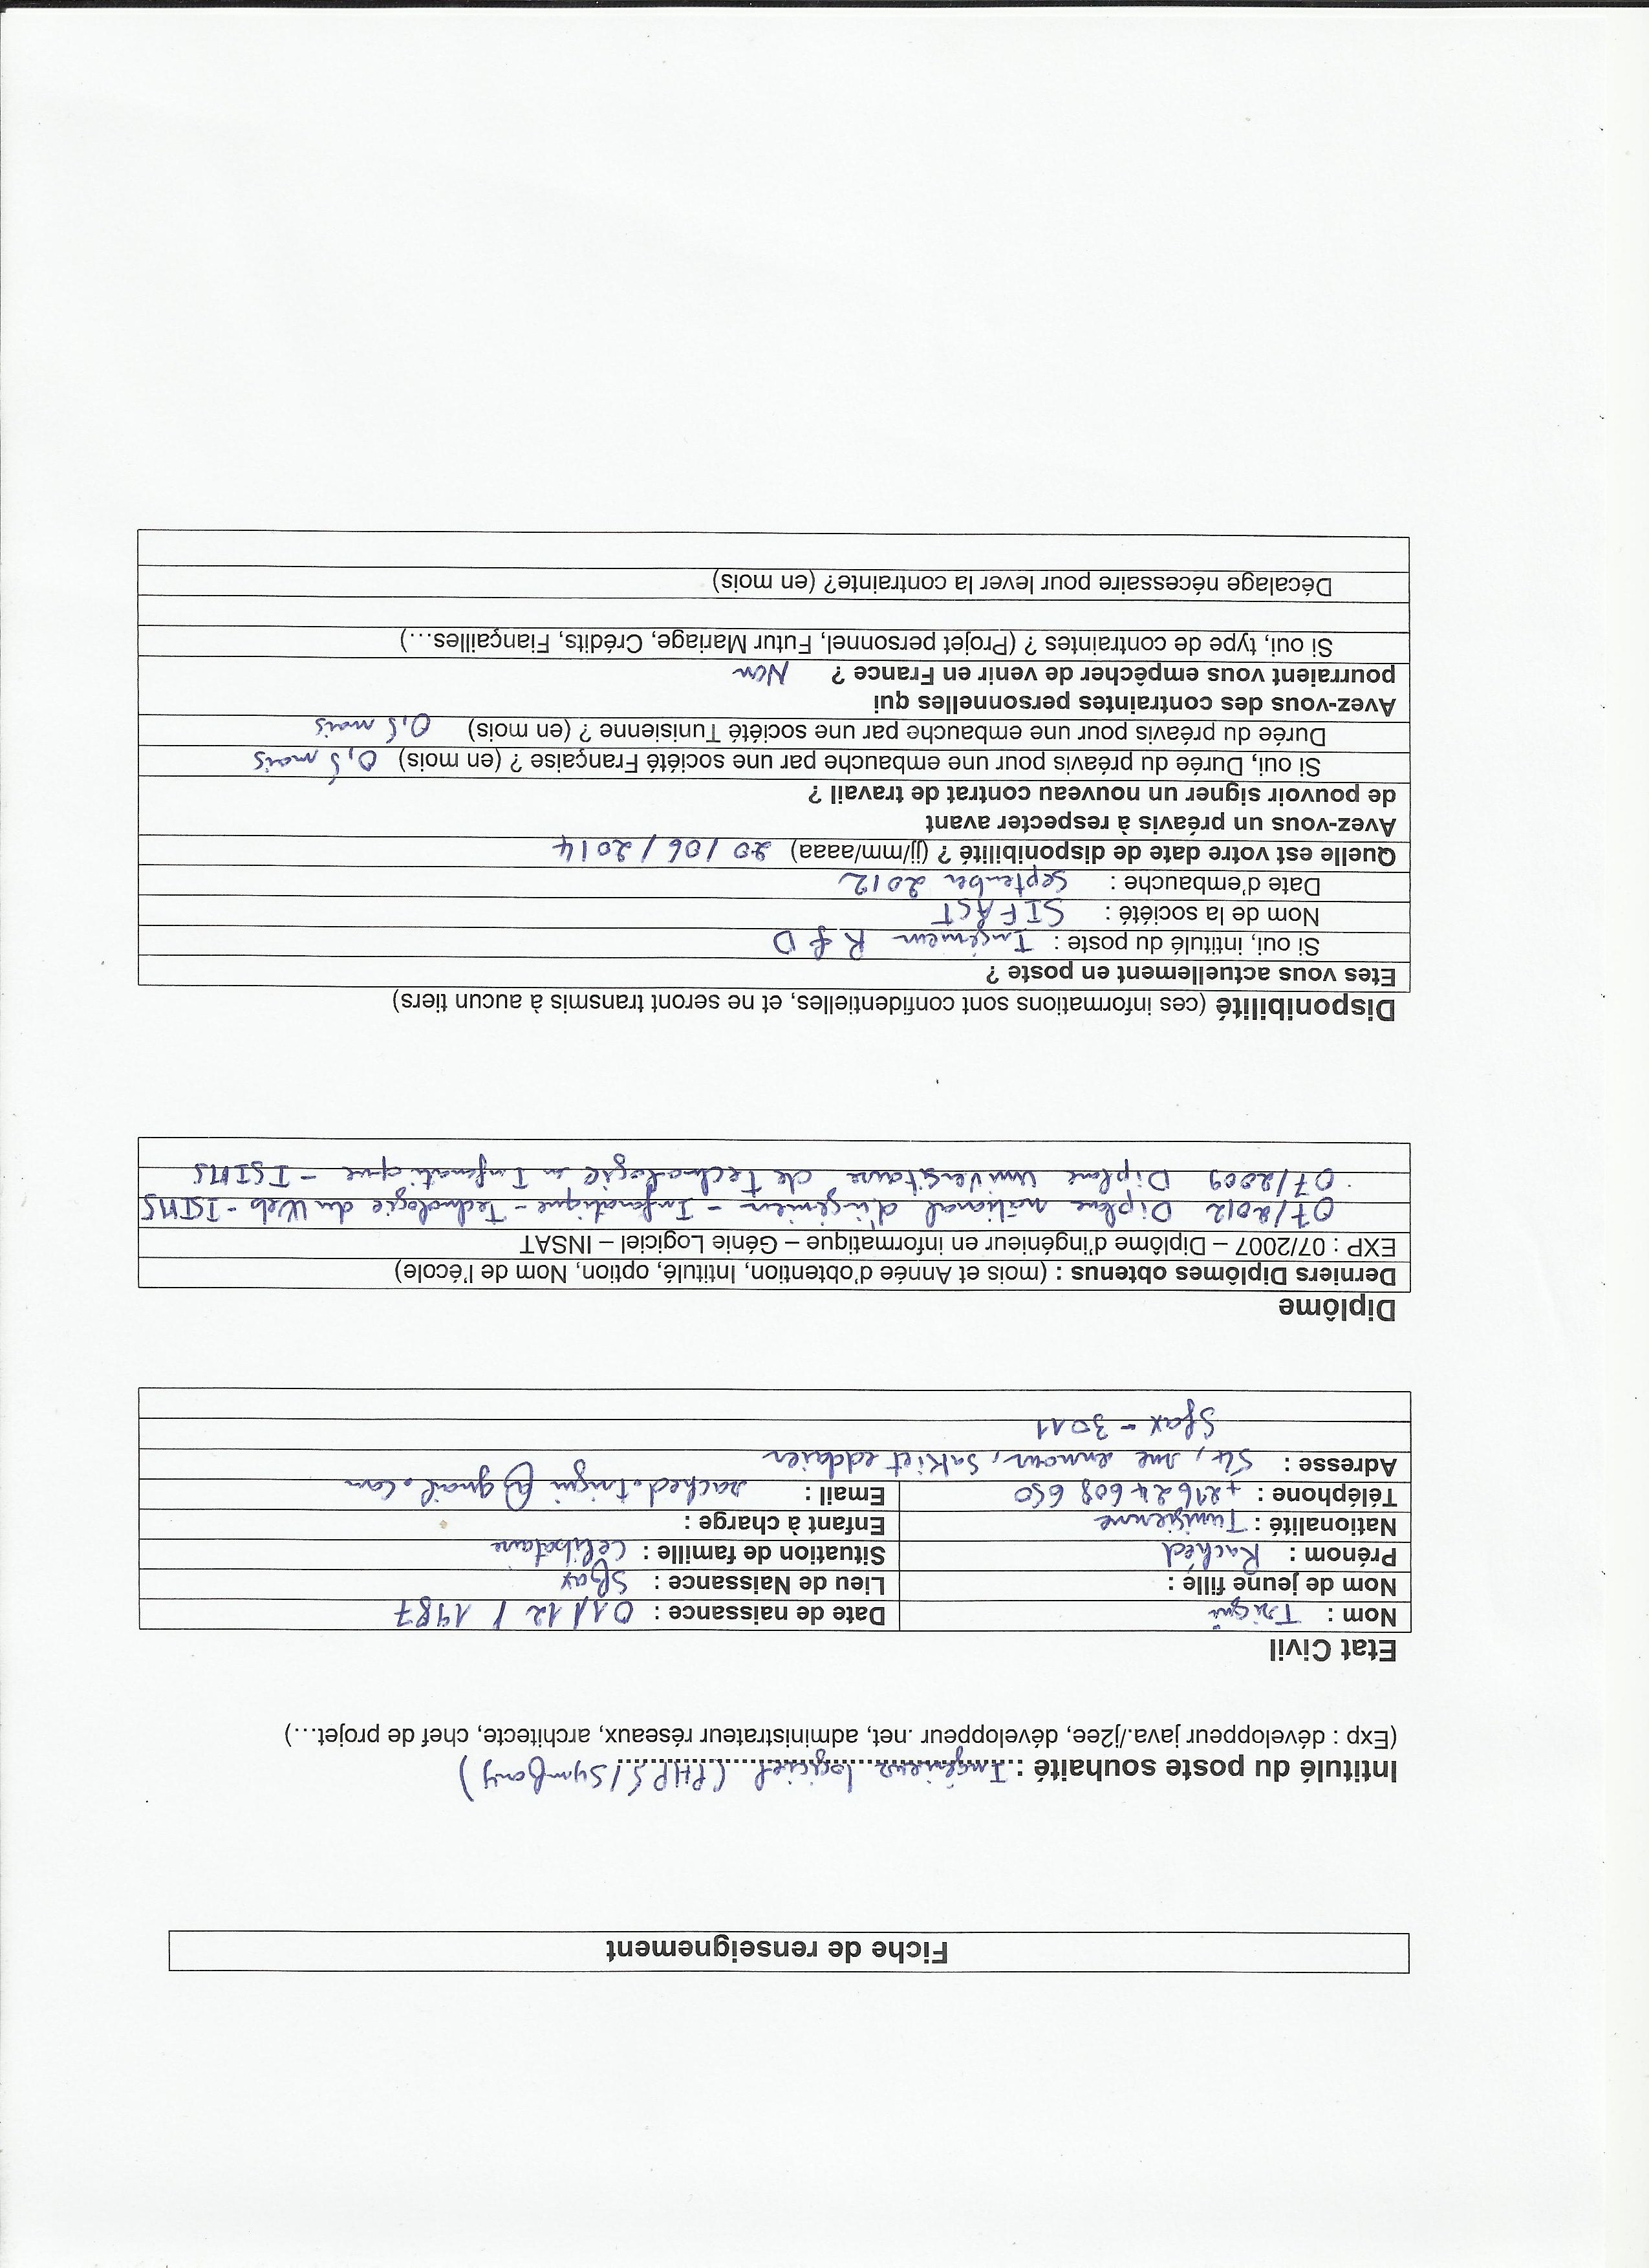 Fiche de renseignement
Intitulé du poste souhaité : Ingénieur logiciel (PHP5/Symfony)
(Exp : développeur java./j2ee, développeur .net, administrateur réseaux, architecte, chef de projet…)
Etat Civil
Nom : Trigui Date de naissance : 01/12/1987
Nom de jeune fille : Lieu de Naissance : Sfax
Prénom : Rached Situation de famille : Célibataire
Nationalité : Tunisienne Enfant à charge :
Téléphone : +216 24 608 650 Email : rached.trigui@gmail.com
Adresse : rue ennour, sakiet eddaier
Sfax - 3011
Diplôme
Derniers Diplômes obtenus : (mois et Année d'obtention, Intitulé, option, Nom de l'école)
EXP : 07/2007 – Diplôme d'ingénieur en informatique – Génie Logiciel – INSAT
07/2012 Diplôme national d'ingénieur - Informatique - Technologie du Web - ISIMS
07/2009 Diplôme universitaire de Technologie en Informatique - ISIMS
Disponibilité (ces informations sont confidentielles, et ne seront transmis à aucun tiers)
Etes vous actuellement en poste ?
Si oui, intitulé du poste : Ingénieur R & D
Nom de la société : SIFAST
Date d'embauche : September 2012
Quelle est votre date de disponibilité ? (jj/mm/aaaa) 20/06/2014
Avez-vous un préavis à respecter avant
de pouvoir signer un nouveau contrat de travail ?
Si oui, Durée du préavis pour une embauche par une société Française ? (en mois) 0,5 mois
Durée du préavis pour une embauche par une société Tunisienne ? (en mois) 0,5 mois
Avez-vous des contraintes personnelles qui
pourraient vous empêcher de venir en France ? Non
Si oui, type de contraintes ? (Projet personnel, Futur Mariage, Crédits, Fiançailles…)
Décalage nécessaire pour lever la contrainte? (en mois)